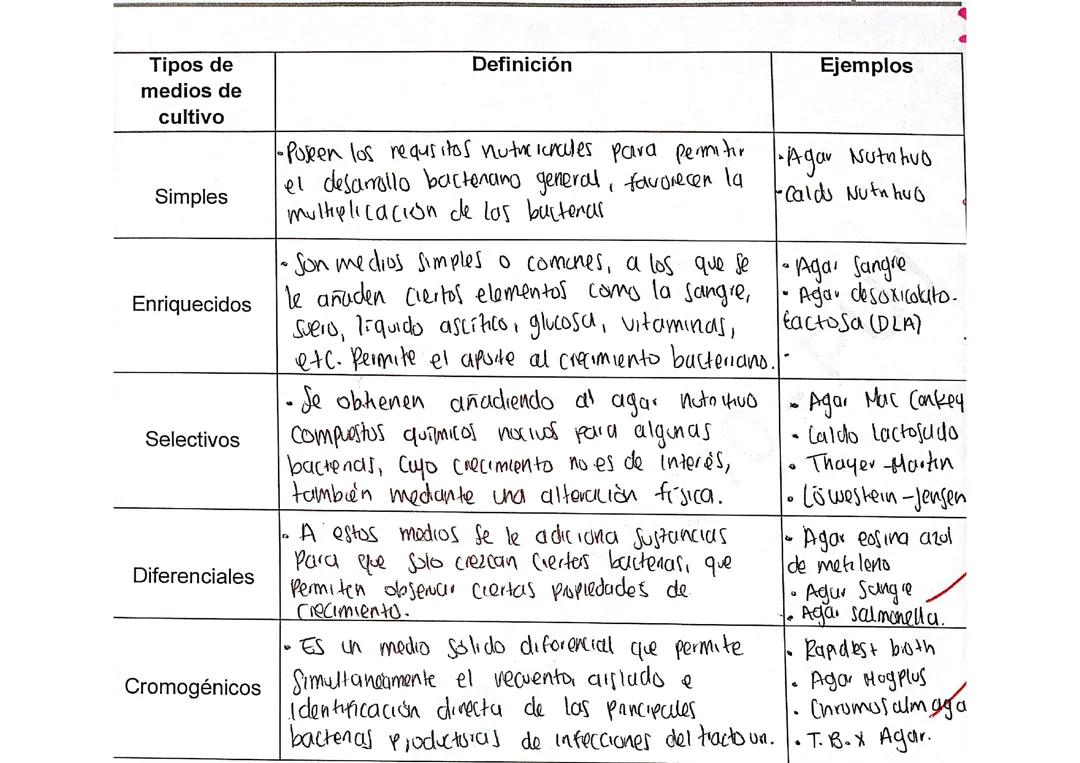 Tipos de
medios de
cultivo
Definición
Ejemplos
Simples
-Poseen los requisitos nutricionales para permitir
el desarrollo bacteriano general, favorecen la
multiplicación de las bacterias
-Agar Nutritivo
-Caldo Nutritivo
Enriquecidos
- Son medios simples o comunes, a los que se
le añaden ciertos elementos como la sangre,
suero, líquido ascítico, glucosa, vitaminas,
etc. Permite el aporte al crecimiento bacteriano.
- Agar sangre
- Agar desoxicolato-
Lactosa (DLA)
-
Selectivos
- Se obtienen añadiendo al agar nutritivo
compuestos químicos nocivos para algunas
bacterias, cuyo crecimiento no es de interés,
también mediante una alteración física.
- Agar Mac Conkey
- Caldo lactosado
- Thayer-Martin
- Löwestein-Jensen
Diferenciales
- A estos medios se le adiciona sustancias
Para que solo crezcan ciertas bacterias, que
Permiten observar ciertas propiedades de
crecimiento.
- Agar eosina azul
de metileno
- Agar Sangre
- Agar salmonella.
Cromogénicos
- Es un medio sólido diferencial que permite
simultaneamente el recuento, aislado e
identificación directa de las principales
bacterias productoras de infecciones del tracto un.
- Rapidest broth
- Agar Hogplus
- Chromosalm aga
- T.B.X Agar.